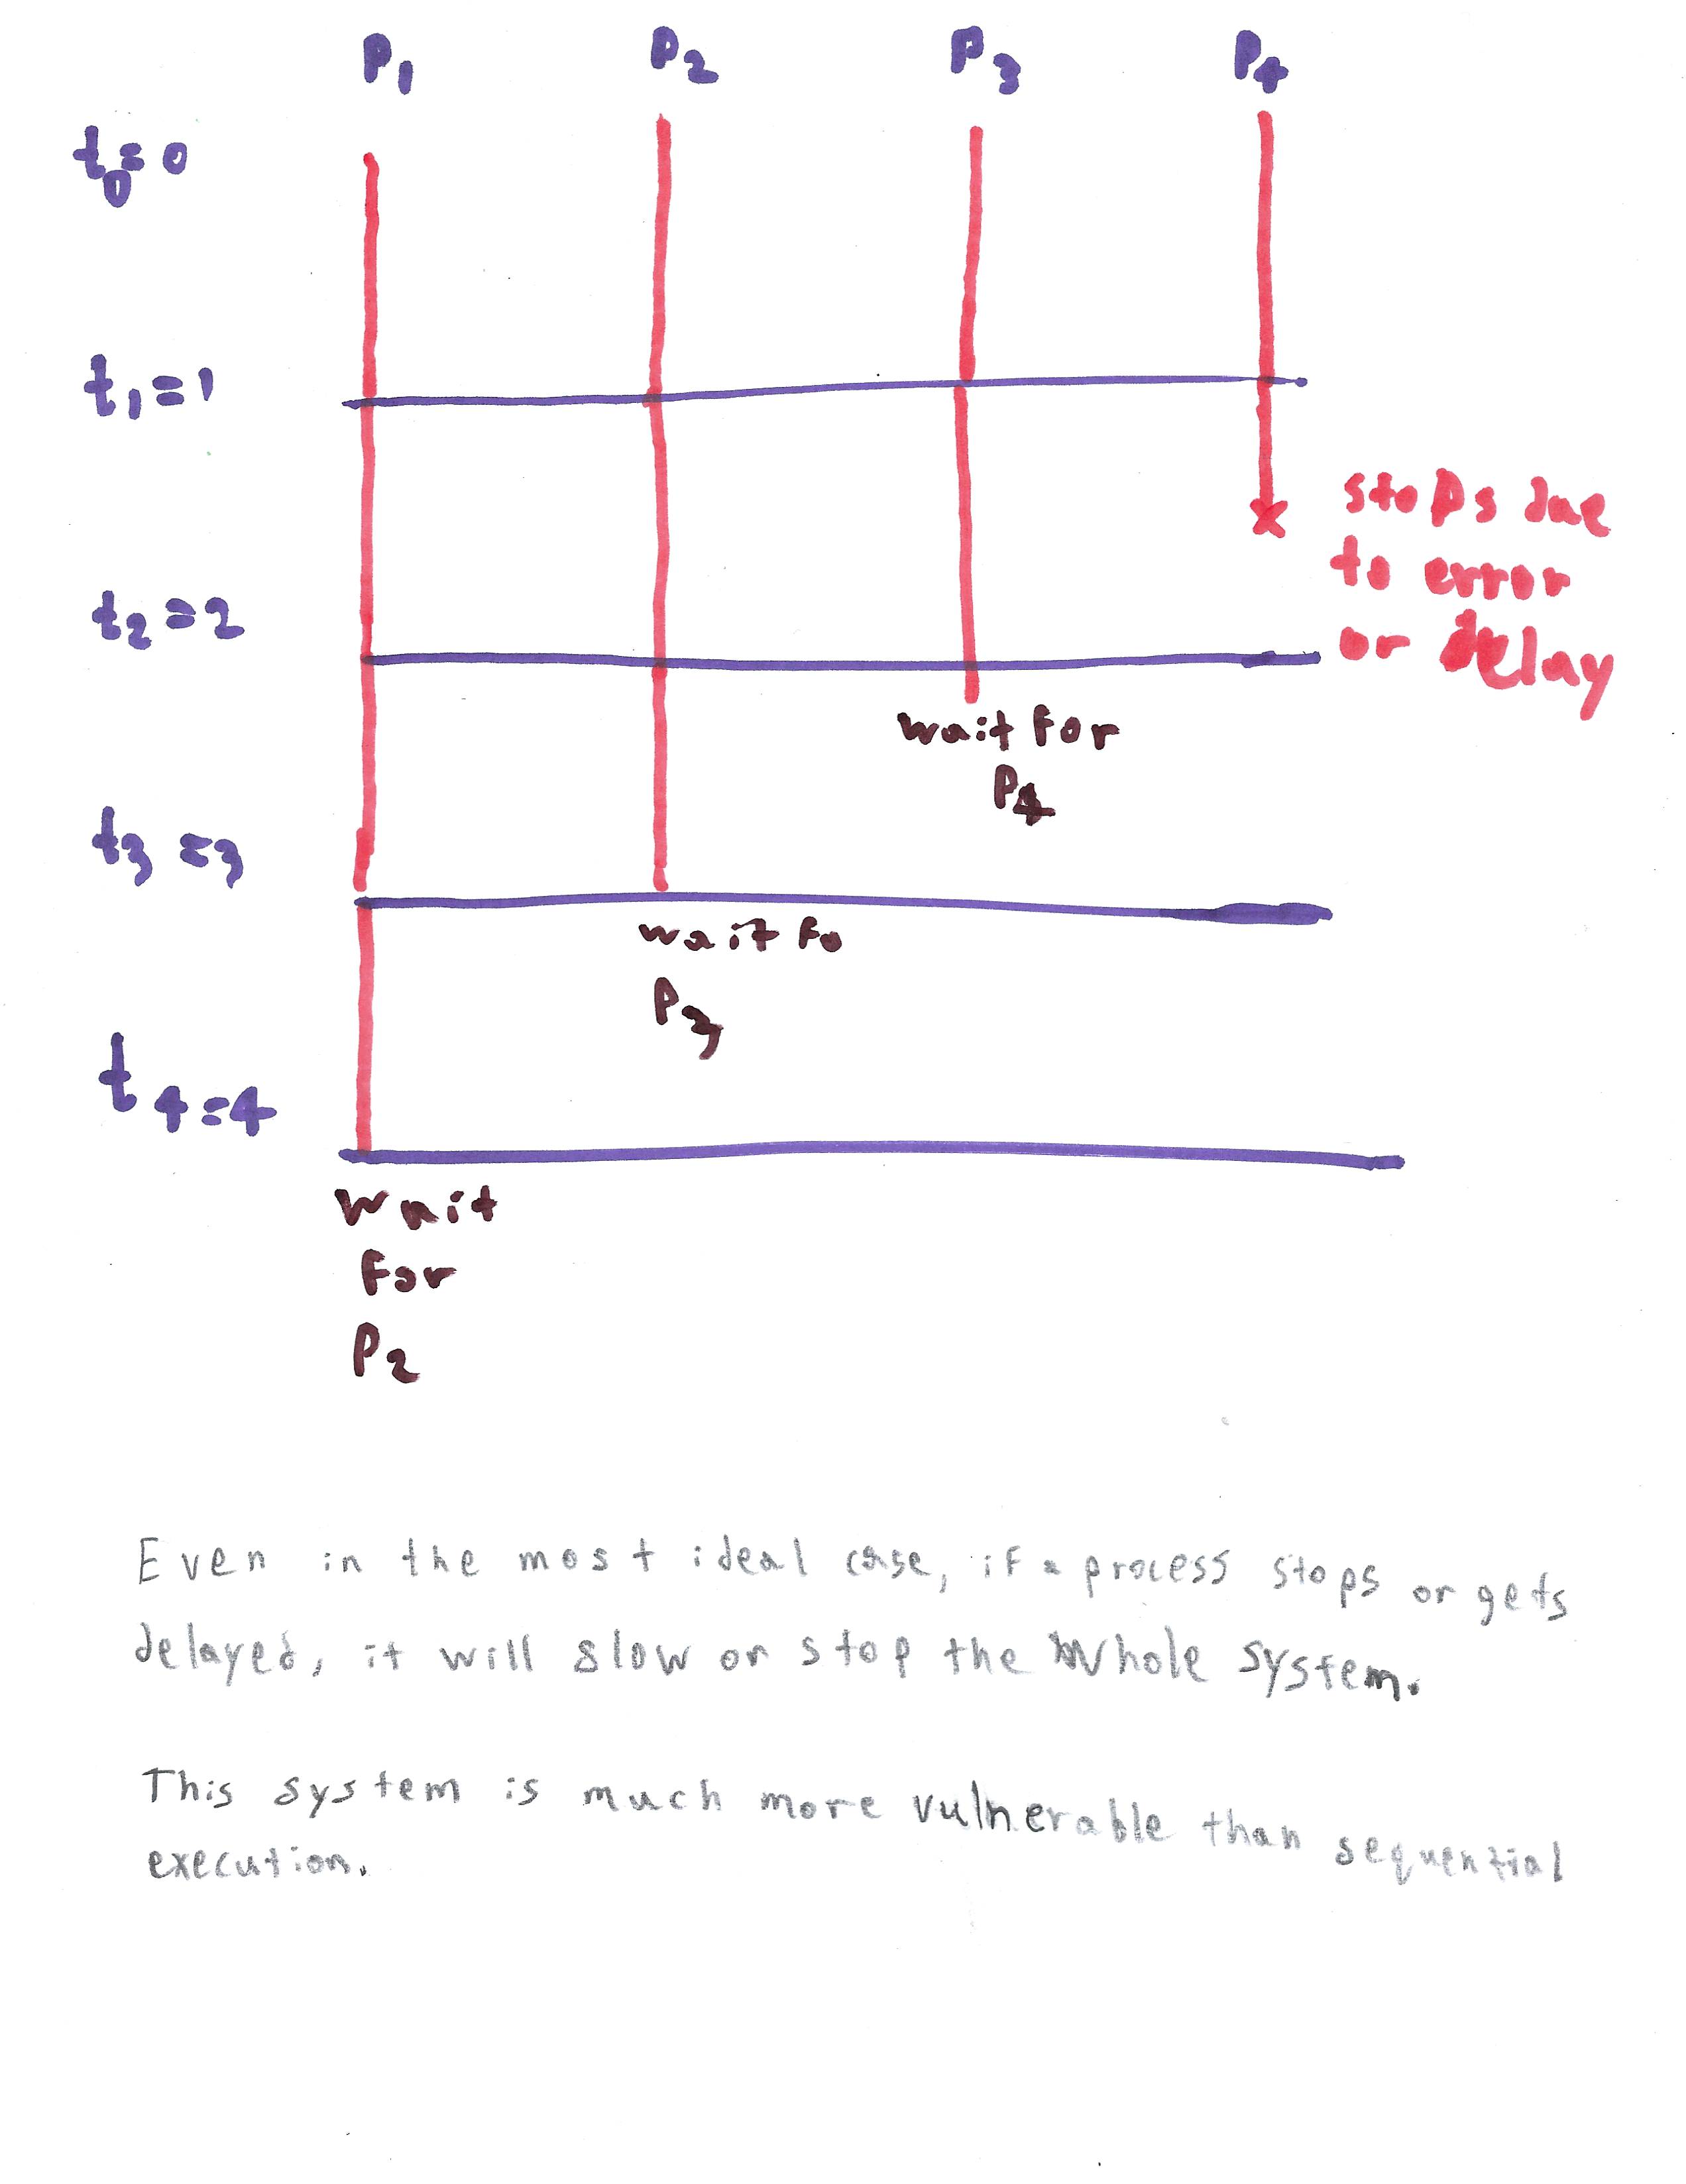 P1 P2 P3 P4
t0=0
t1=1
stops due
to error
or delay
t2=2
wait for
P4
t3=3
wait fo
P3
t4=4
wait
for
P2
Even in the most ideal case, if a process stops or gets
delayed, it will slow or stop the whole system.
This system is much more vulnerable than sequential
execution.